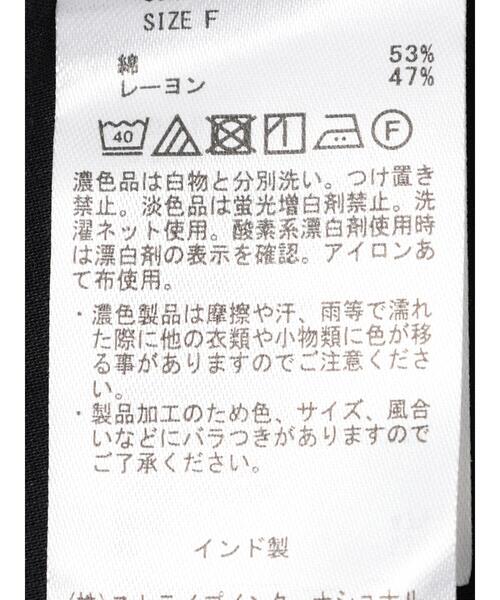 SIZE F
綿 53%
レーヨン 47%
40
F
濃色品は白物と分別洗い。つけ置き
禁止。淡色品は蛍光増白剤禁止。洗
濯ネット使用。酸素系漂白剤使用時
は漂白剤の表示を確認。アイロンあ
て布使用。
・濃色製品は摩擦や汗、雨等で濡れ
た際に他の衣類や小物類に色が移
る事がありますのでご注意くださ
い。
・製品加工のため色、サイズ、風合
いなどにバラつきがありますので
ご了承ください。
インド製